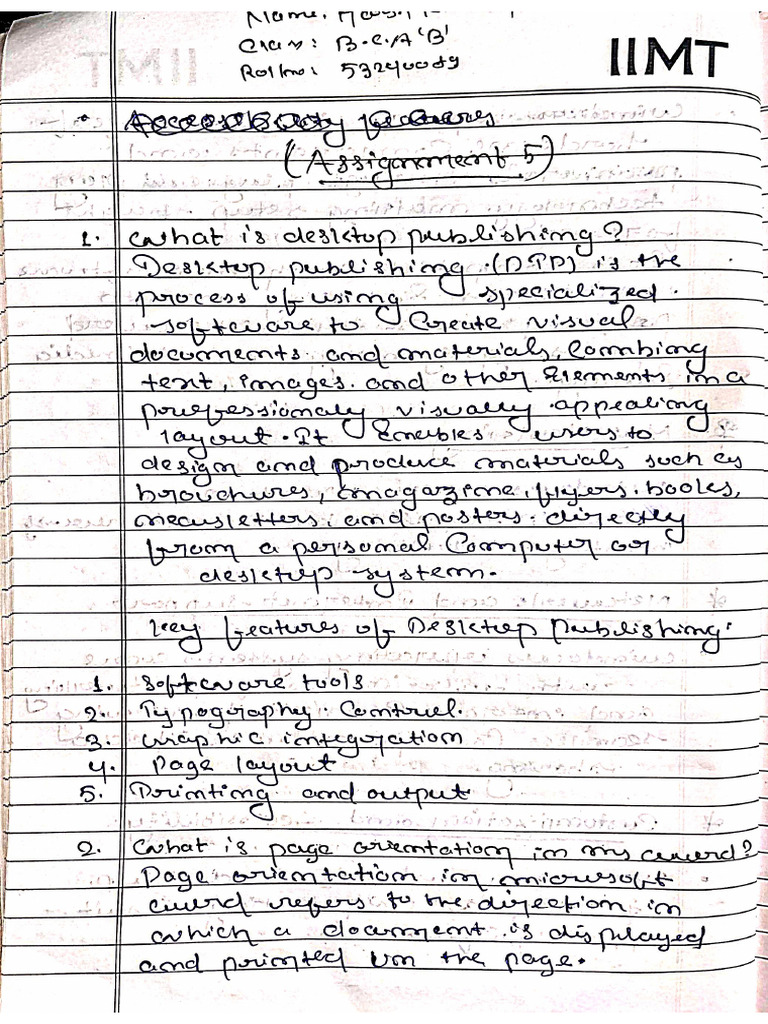 Name:
Class: B.C.A 'B'
Roll no: 53240089
IIMT
(Assignment 5)
1. What is desktop publishing?
Desktop publishing (DTP) is the
process of using specialized
software to Create visual
documents and materials, Combing
text, images and other Elements in a
professionaly visually appealing
layout. It Enables users to
design and produce materials such as
brouchures, magazine, flyers. books,
newsletters, and posters directly
from a personal Computer or
desktop system.
Key features of Desktop Publishing:
1. Software tools
2. Typography Control.
3. Graphic integration
4. Page layout
5. Printing and output
2. What is page orientation in ms word?
Page orientation in microsoft
word refers to the direction in
which a document is displayed
and printed on the page.